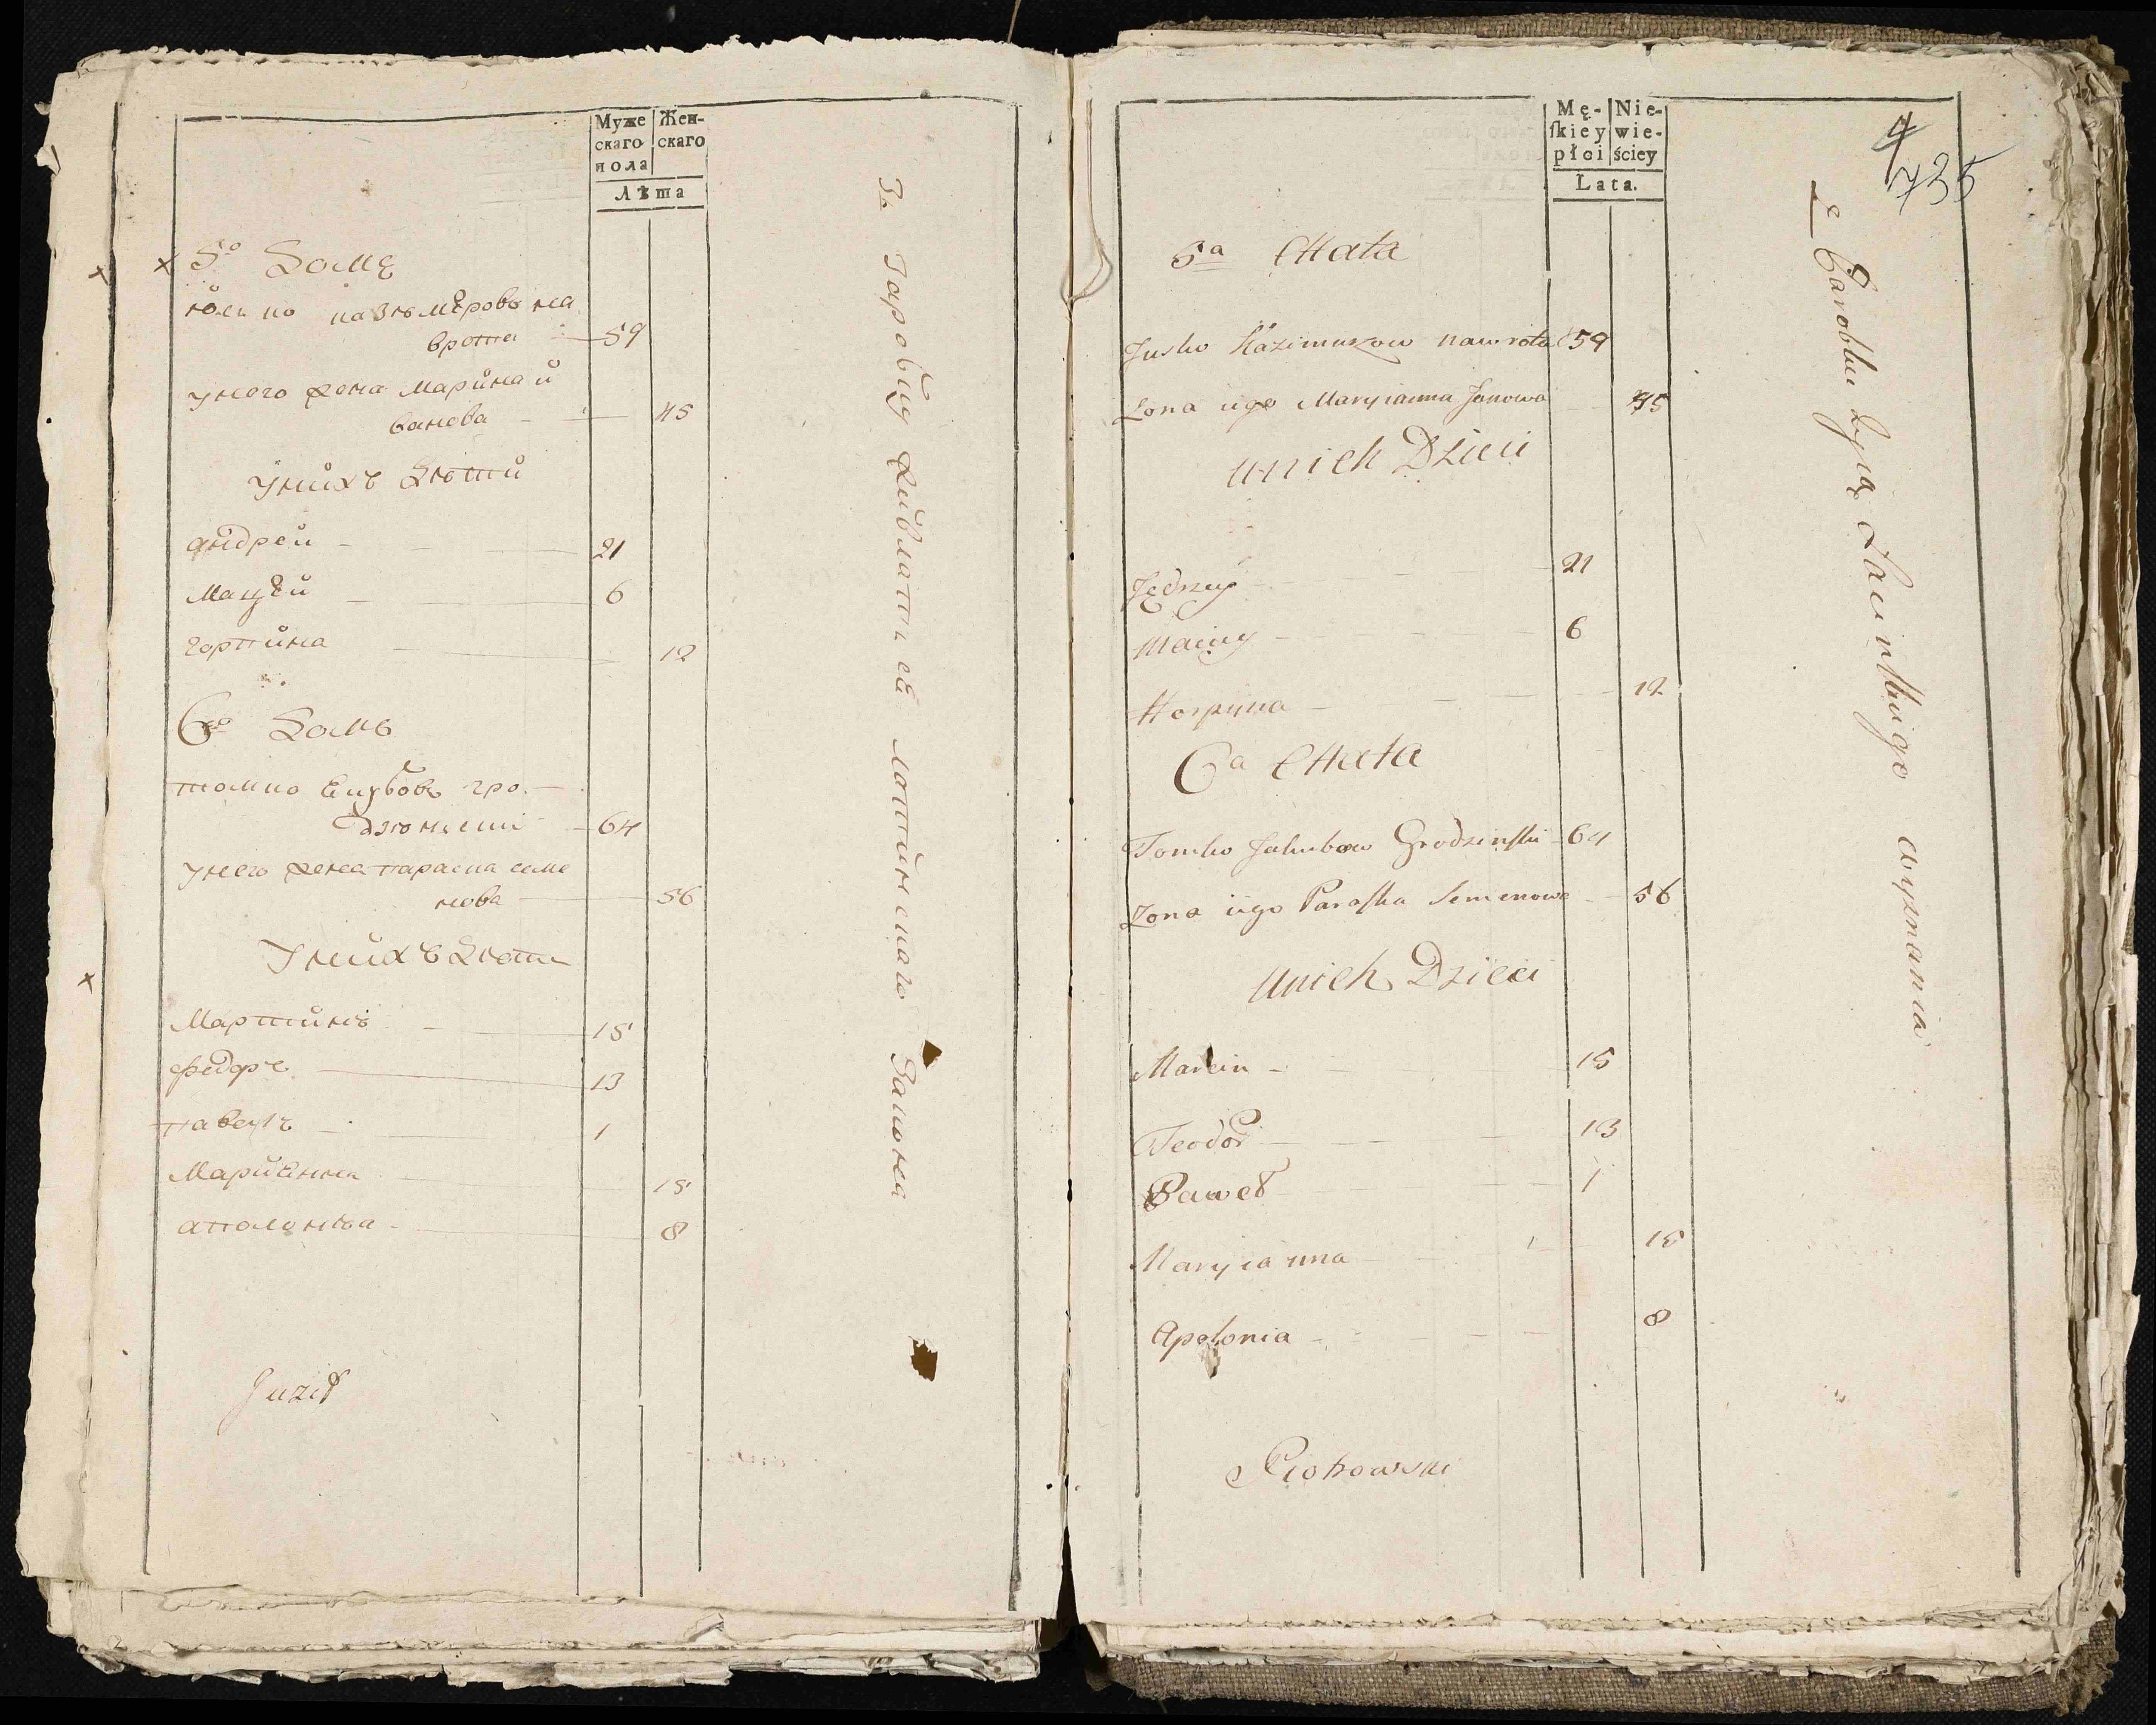 Муже
скаго
пола
Жен-
скаго
Лѣта
5о Домъ
врота 59
унего жена Марина и
ванова 45
Унихъ Дѣти
андрей 21
Мацѣй 6
горпина 12
6о Домъ
томко Якубовъ гро-
64
унего жена параска семе
нова 56
Унихъ Дѣти
Мартинъ 15
федоръ 13
павелъ 1
Мариянна 15
аполонѣа 8
живлатъ ей латинскаго закона
Mę-
ſkiéy
płci
Nie-
wie-
ściey
Lata.
4
735
5a CHata
Jusko Kazimirzow nawrota 59
Zona iigo Maryianna Janowa 45
Unich Dzieci
Jędrzey 21
Maciey 6
Horpyna 12
6a CHata
Tomko Jakubow Grodzinſki 64
Zona iigo Paraſka Semenowa 56
Unich Dzieci
Marcin 15
Teodor 13
Paweł 1
Maryianna 15
Apolonia 8
Piotrowski
Parobki żyią Łacinſkiigo wyznania